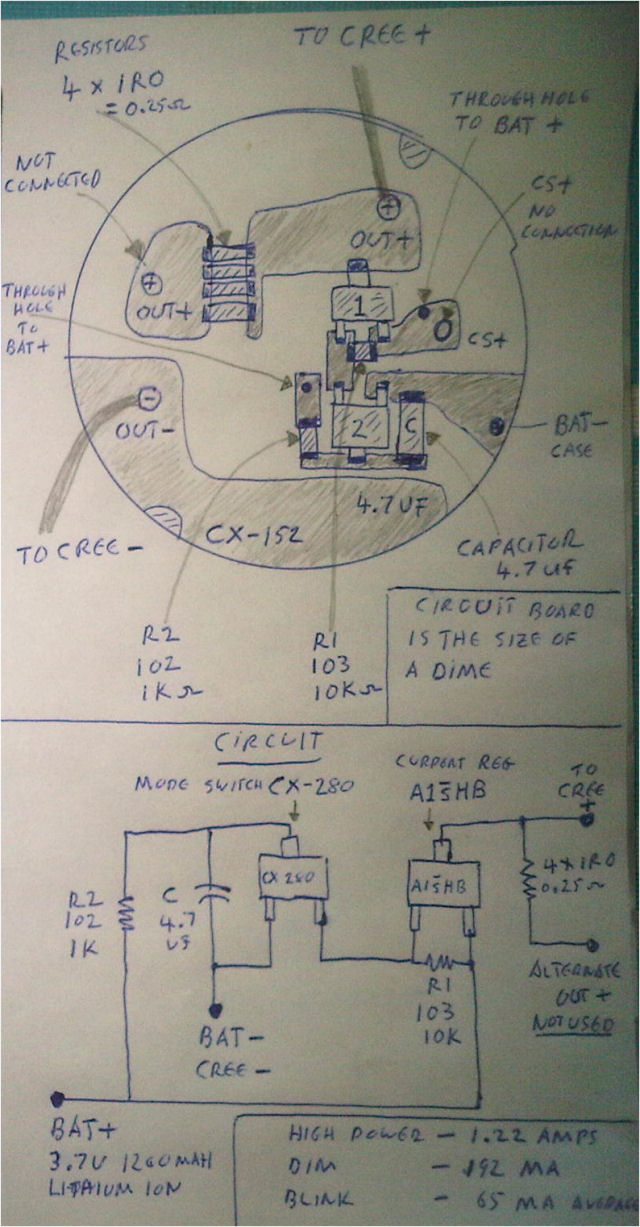 RESISTORS
4 x 1R0
= 0.25Ω
TO CREE +
THROUGH HOLE
TO BAT +
NOT
CONNECTED
CS+
NO
CONNECTION
OUT+
OUT+
1
THROUGH
HOLE
TO
BAT+
CS+
OUT-
2
C
BAT-
CASE
4.7UF
CX-152
TO CREE -
CAPACITOR
4.7 UF
R2
102
1KΩ
R1
103
10KΩ
CIRCUIT BOARD
IS THE SIZE OF
A DIME
CIRCUIT
MODE SWITCH CX-280
CURRENT REG
A15HB
TO
CREE
+
CX 280
A15HB
4 x 1R0
0.25Ω
R2
102
1K
C
4.7
UF
R1
103
10K
ALTERNATE
OUT +
NOT USED
BAT-
CREE -
BAT+
3.7V 1200MAH
LITHIUM ION
HIGH POWER - 1.22 AMPS
DIM - 192 MA
BLINK - 65 MA AVERAGE